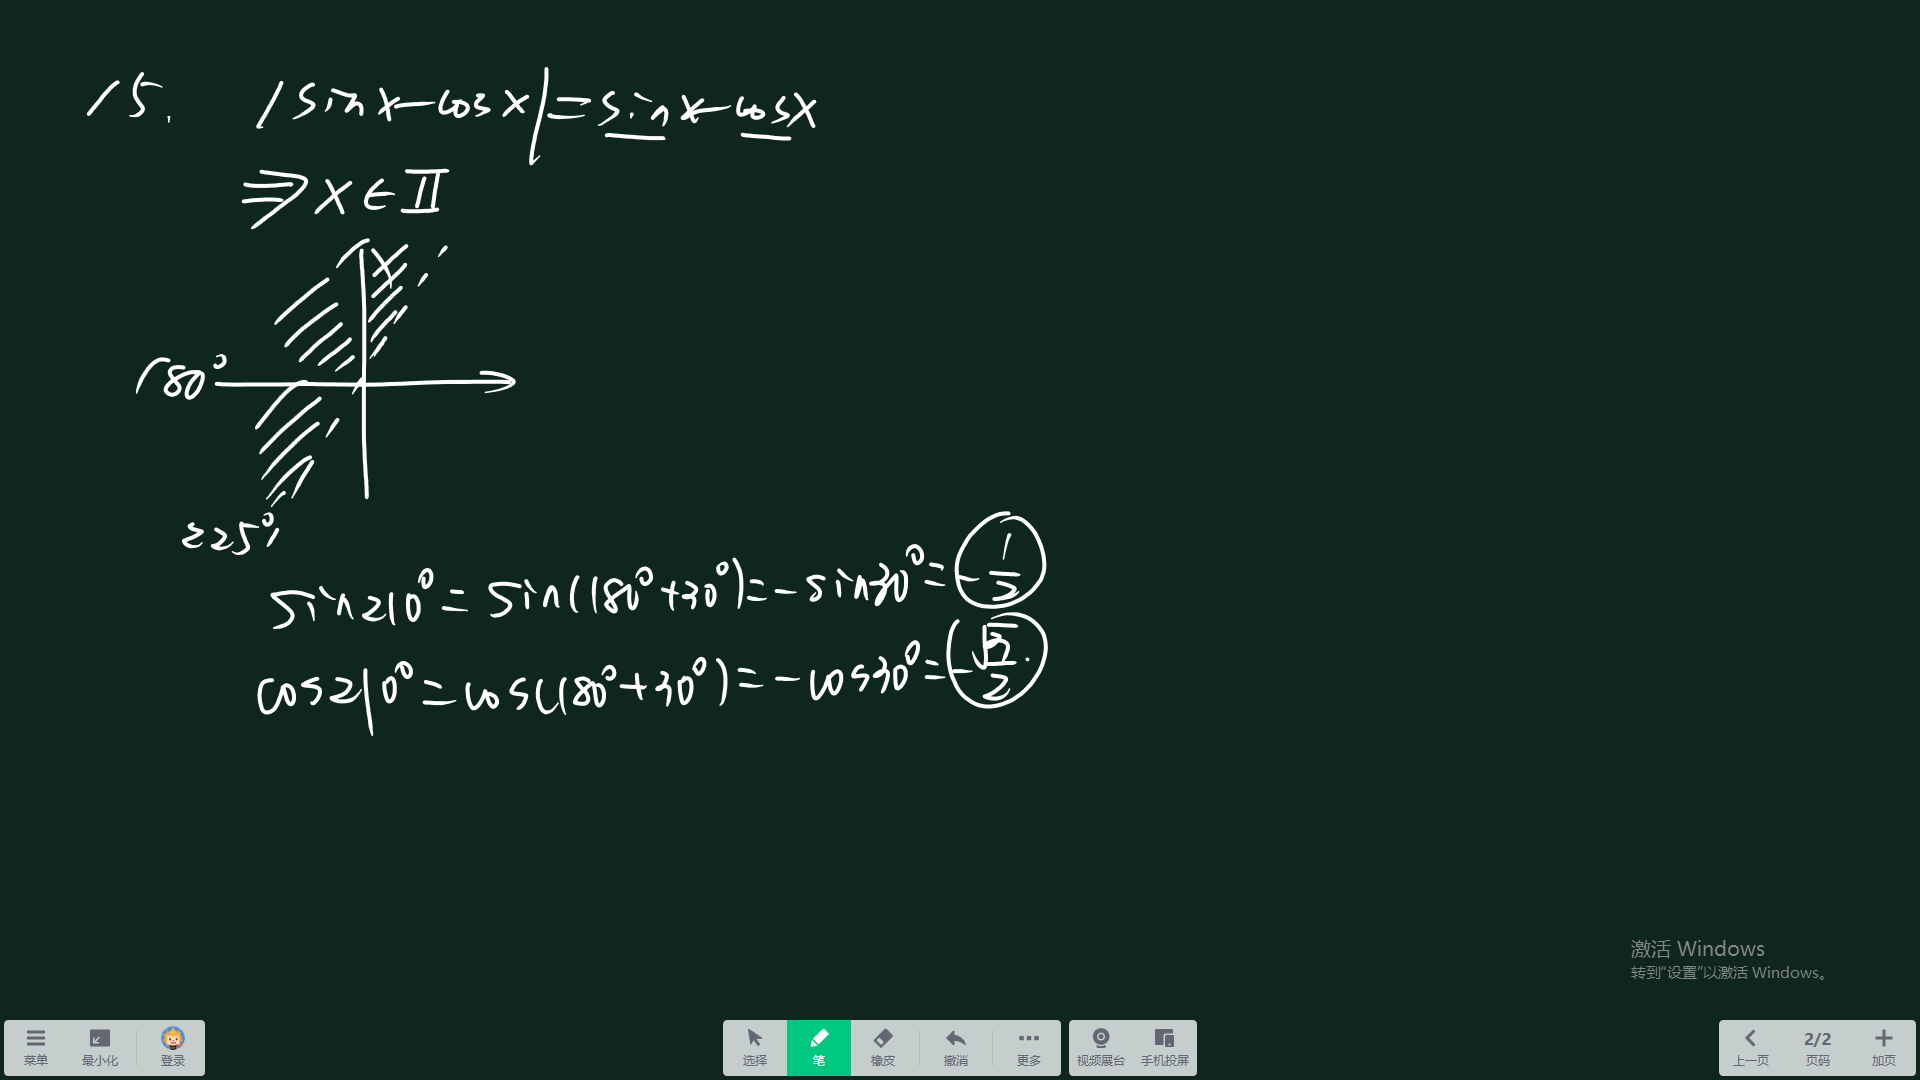 15. |sinx-cosx|=sinx-cosx
⇒x∈Ⅱ
180°
225°
sin210°=sin(180°+30°)=-sin30°=-1/2
cos210°=cos(180°+30°)=-cos30°=-√3/2.
激活 Windows
转到“设置”以激活 Windows。
菜单 最小化 登录 选择 笔 橡皮 撤消 更多 视频展台 手机投屏 上一页 2/2 页码 加页